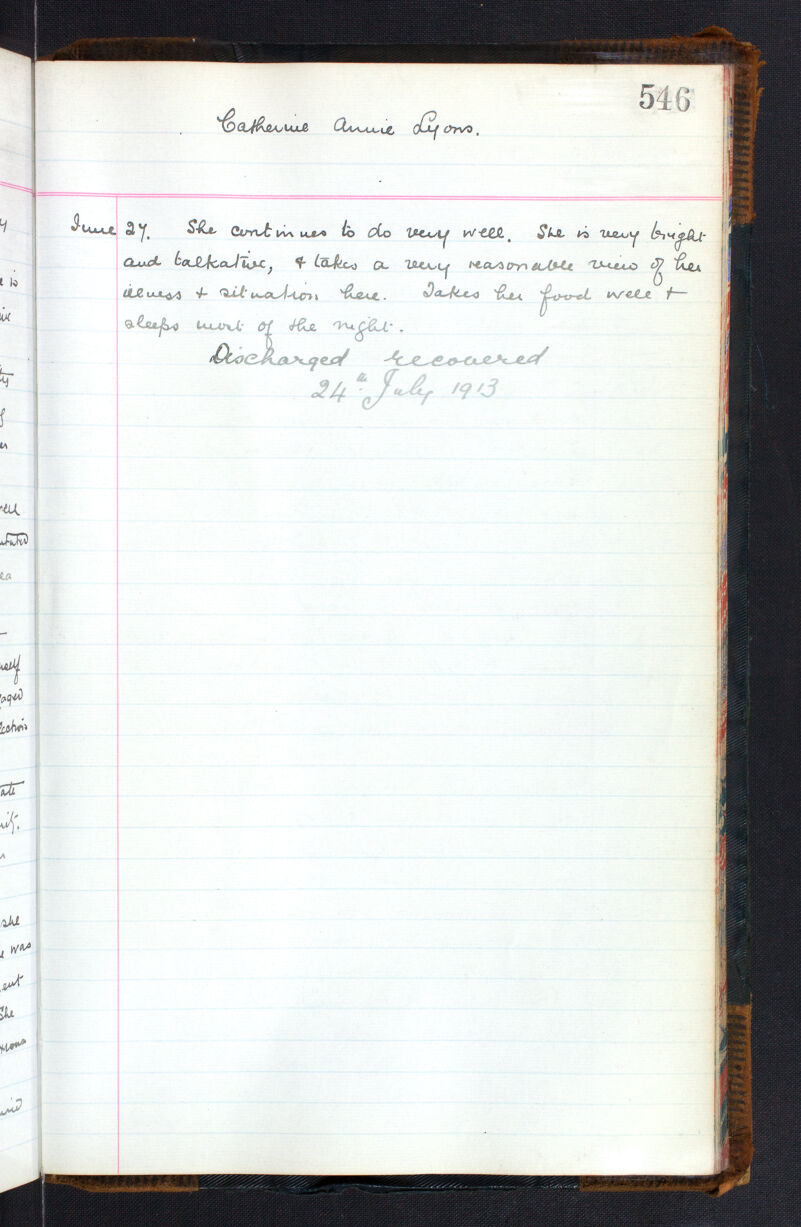 546
Catherine Annie Lyons.
June 27. She continues to do very well. She is very bright
and talkative, & takes a very reasonable view of her
illness + situation here. Takes her food well +
sleeps most of the night.
Discharged recovered
24th July 1913
she
was
She